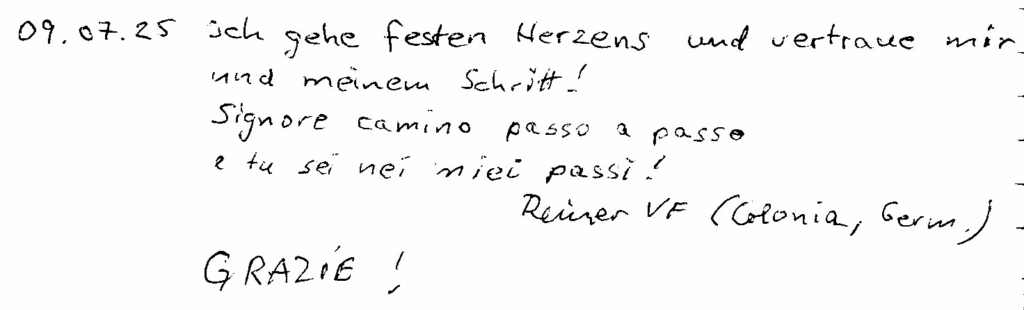 09.07.25 ich gehe festen Herzens und vertraue mir
und meinem Schritt!
Signore camino passo a passo
e tu sei nei miei passi!
Reiner VF (Colonia, Germ.)
GRAZIE !